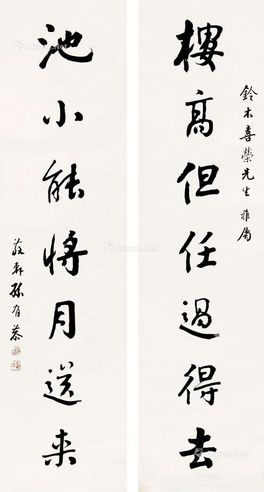 鈴木喜榮先生雅屬
樓高但任過得去
池小能將月送来
孫有慕